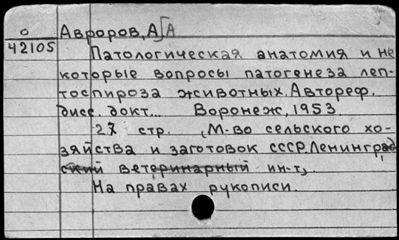 О
42105
Авроров, А[А
Патологическая анатомия и не
которые вопросы патогенеза леп-
тоспироза животных. Автореф.
дисс. докт... Воронеж, 1953.
27 стр. (М-во сельского хо-
зяйства и заготовок СССР. Ленинград
ский ветеринарный ин-т)
На правах рукописи.